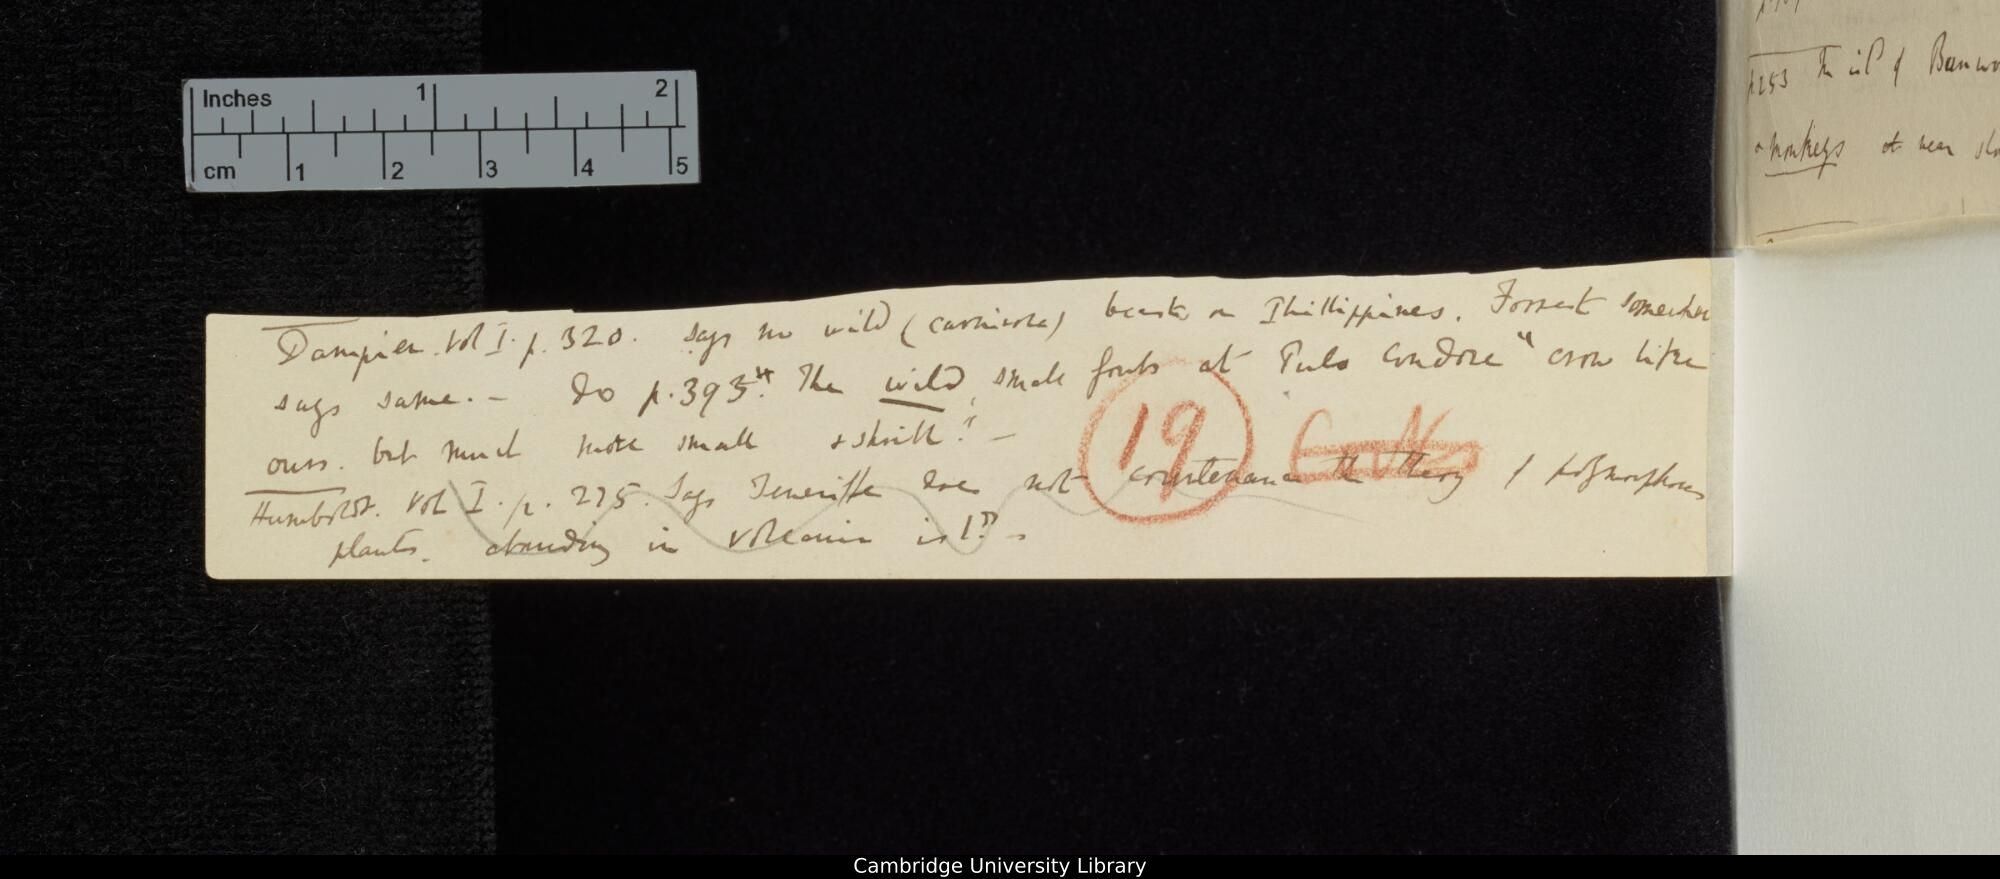 Inches 1 2
cm 1 2 3 4 5
Dampier. Vol I. p. 320. says no wild (carnivora) beasts on Phillippines. Forrest somewhere
says same. — Do p. 393. "The wild, small fowls at Pulo Condore "crow like
ours. but much more small & shrill." —
19
Humboldt. Vol I. p. 275. Says Teneriffe does not countenance the theory of polymorphous
plants. abounding in volcanic isld. —
p 253 The isld of
& monkeys at near
Cambridge University Library